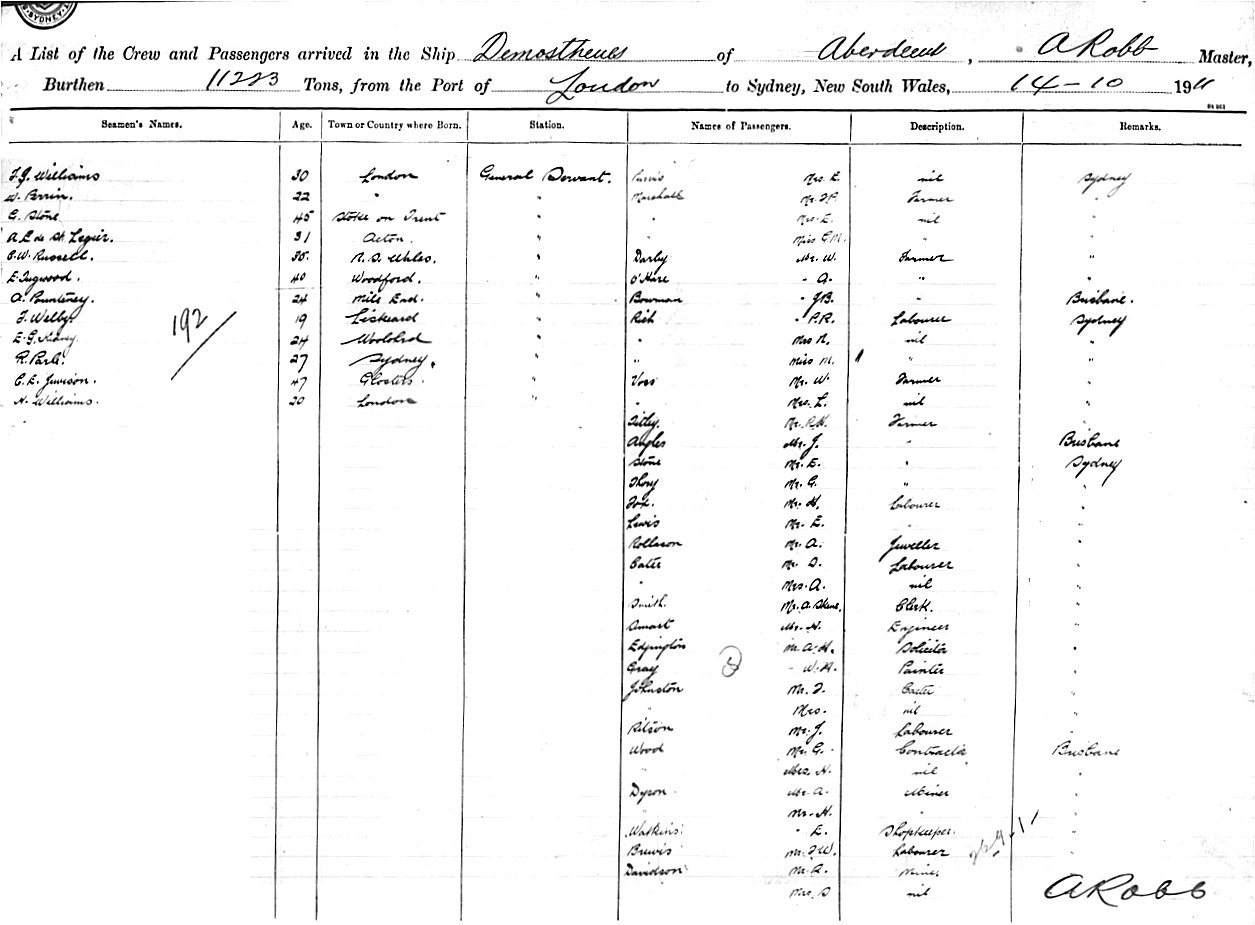 SYDNEY
A List of the Crew and Passengers arrived in the Ship Demosthenes of Aberdeen, A Robb Master,
Burthen 11223 Tons, from the Port of London to Sydney, New South Wales, 14-10 1911
Seamen's Names. Age. Town or Country where Born. Station. Names of Passengers. Description. Remarks.
Williams 30 London General Servant. Purvis Mrs. E. nil Sydney
W. Perrin. 22 " " Marshall Mr. Farmer "
C. Stone 45 Stoke on Trent " " Mrs. E. nil "
A. E. de St. Legier. 31 Acton. " " Miss G.M. " "
C.W. Russell. 35 N. S. Wales. " Darby Mr. W. Farmer "
E. Tugwood. 40 Woodford. " O'Hare " A. " "
A. Pounteney. 24 Mile End. " Bowman " J.B. " Brisbane.
F. Welby. 19 Liskeard " Rich " P.R. Labourer Sydney
E. G. 24 " " Mrs N. nil "
R. Park. 27 Sydney. " " Miss M. " "
C. E. Juvison. 47 Gloster. " Voss Mr. W. Farmer "
H. Williams. 20 London " " Mrs. L. nil "
192/
Titley Mr. R.H. Farmer "
Angles Mr. J. " Brisbane
Stone Mr. E. " Sydney
Thory Mr. G. " "
Fox. Mr. H. Labourer "
Lewis Mr. E. " "
Rollason Mr. A. Jeweller "
Cater Mr. S. Labourer "
" Mrs. A. nil "
Smith. Mr. A. Skene. Clerk. "
Smart Mr. H. Engineer "
Edgington Mr. A. H. Solicitor "
Gray " W. A. Painter "
Johnston Mr. F. Carter "
" Mrs. nil "
Ritson Mr. J. Labourer "
Wood Mr. G. Contractor Brisbane
" Mrs. H. nil "
Dyson Mr. A. Miner "
" Mr. H. " "
Watkins " E. Shopkeeper. "
Brewis Mr. F.W. Labourer "
Davidson Mr. A. Miner
Mrs. S nil
A Robb